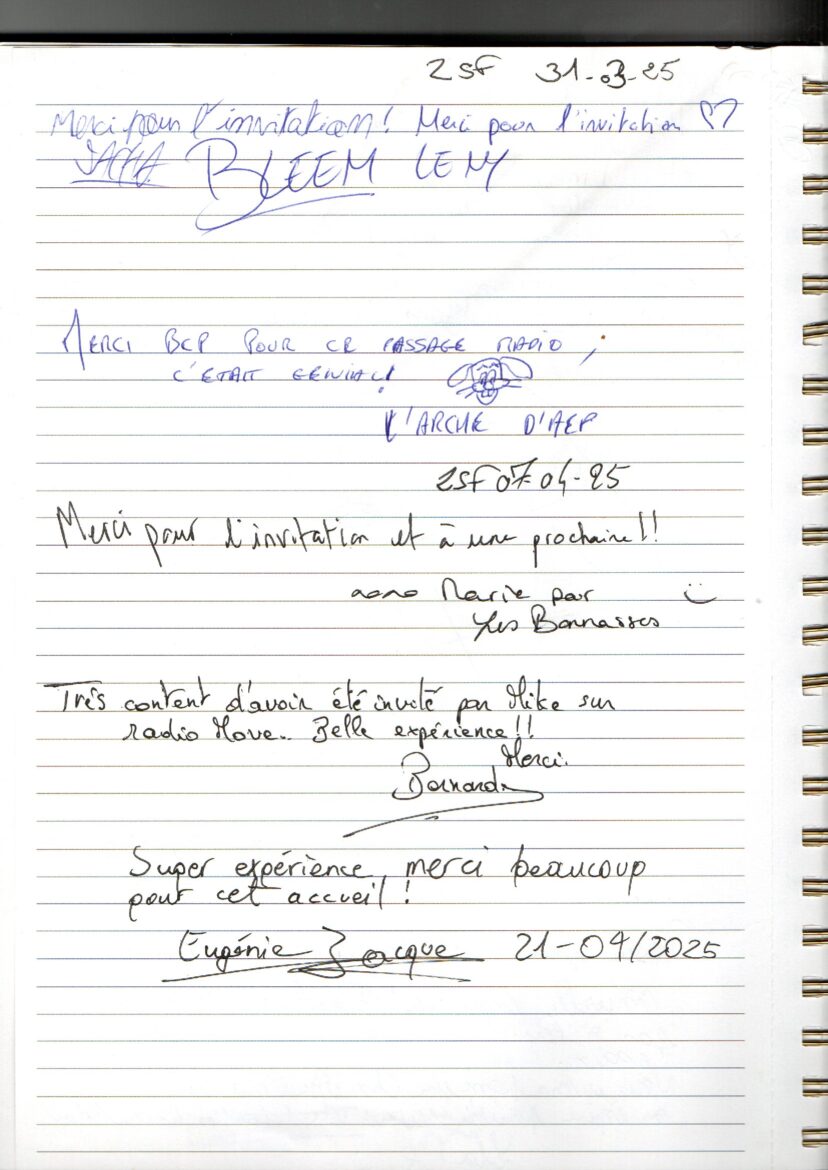 ZSF 31-03-25
Merci pour l'invitation! Merci pour l'invitation ♡
SACHA BLEEM LENY
MERCI BCP POUR CE PASSAGE RADIO,
C'ETAIT GENIAL!
L'ARCHE D'AEP
ZSF 07-04-25
Merci pour l'invitation et à une prochaine!!
Marie par
Les Bonnasses
Très content d'avoir été invité par Mike sur
radio Move.. Belle expérience!!
Merci.
Bernard
Super expérience, merci beaucoup
pour cet accueil!
Eugénie Jacque 21-04/2025